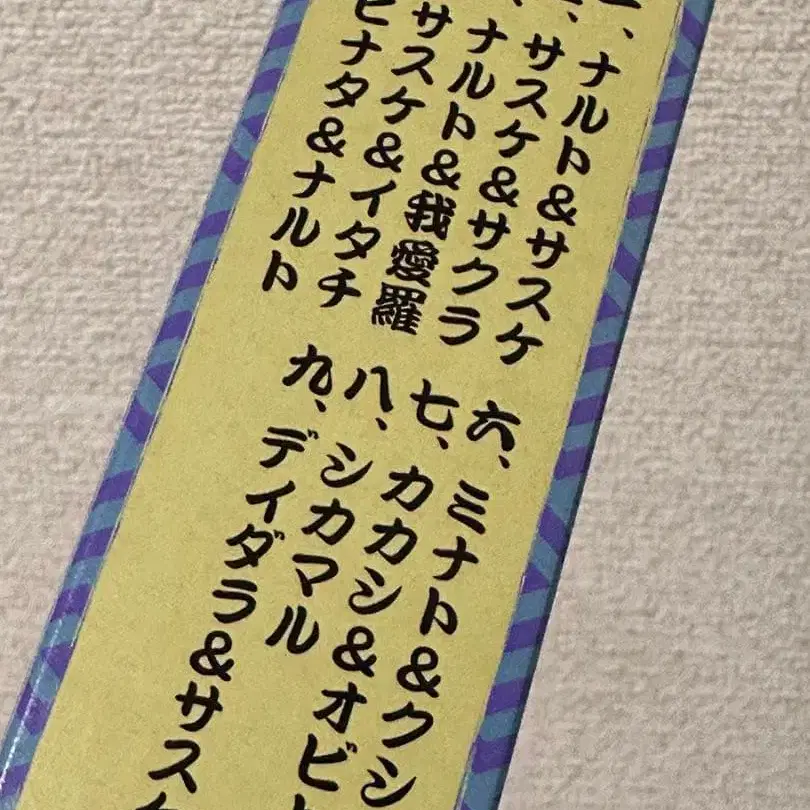 、ナルト&サスケ
、サスケ&サクラ
ナルト&我愛羅
サスケ&イタチ
ヒナタ&ナルト
六、ミナト&クシ
七、カカシ&オビ
八、シカマル
九、デイダラ&サス